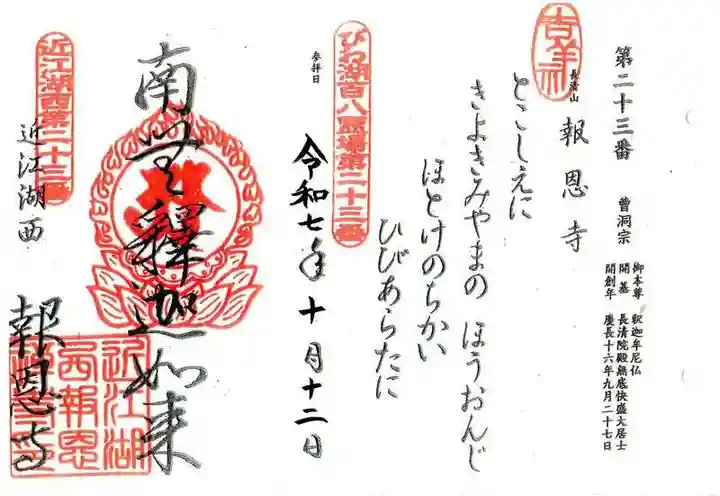 第二十三番 曹洞宗
御本尊 釈迦牟尼仏
開基 長清院殿無底快盛大居士
開創年 慶長十六年九月二十七日
長清山
報恩寺
吉祥
とこしえに
きよきみやまの ほうおんじ
ほとけのちかい
ひびあらたに
びわ湖百八霊場第二十三番
参拝日
令和七年十月十二日
南無釋迦如来
近江湖西第二十三番
近江湖西
報恩寺
近江湖
西報恩
寺